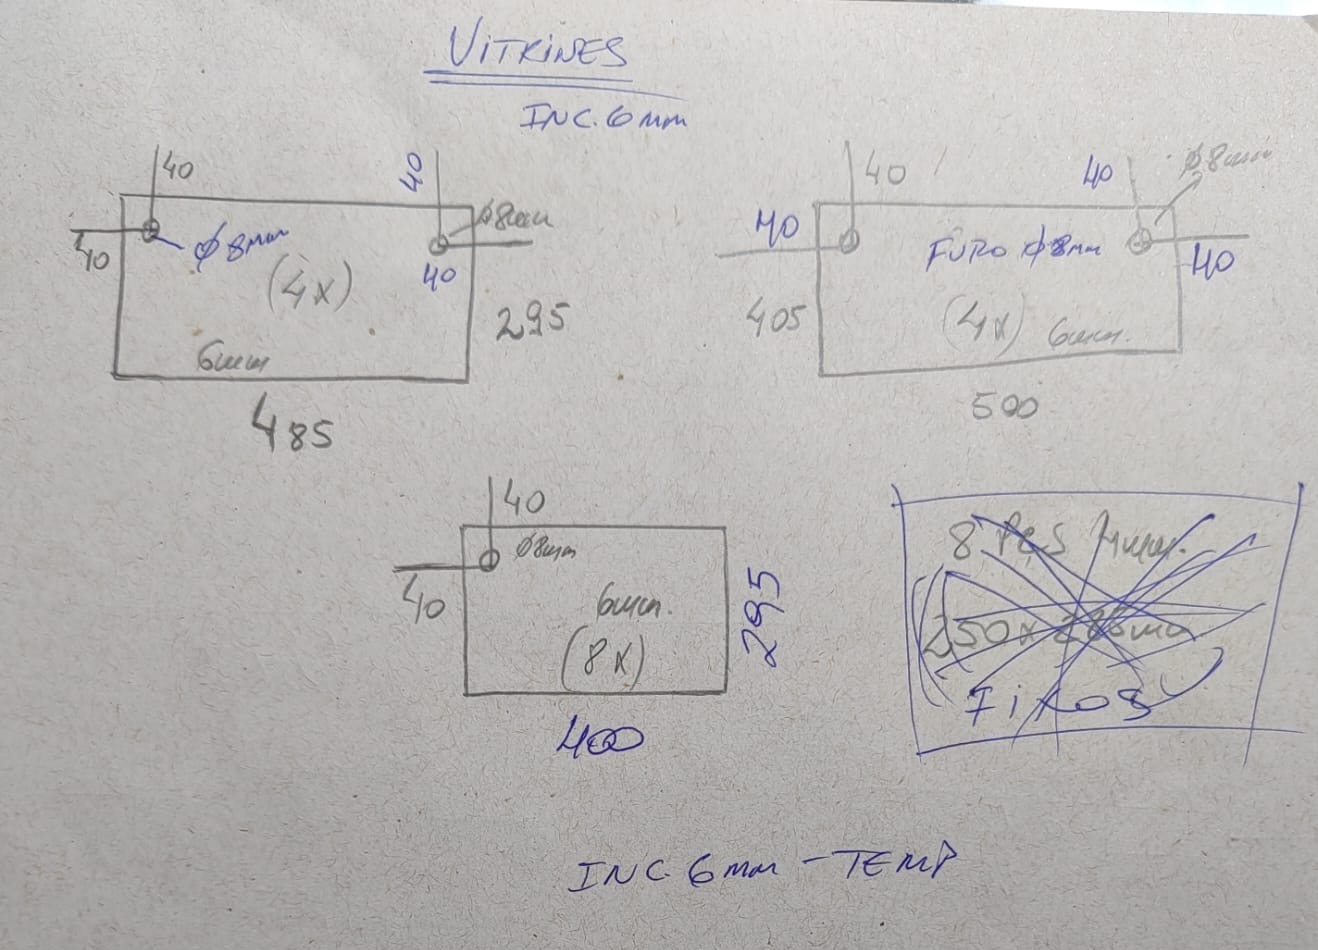 VITRINES
INC. 6mm
40
40
40
Ø8mm
Ø8mm
40
(4x)
295
6mm
485
40
40
Ø8mm
40
FURO Ø8mm
40
405
(4x) 6mm.
500
40
Ø8mm
40
6mm.
(8x)
295
400
8 PÇS
250x
Fixos
INC. 6mm - TEMP